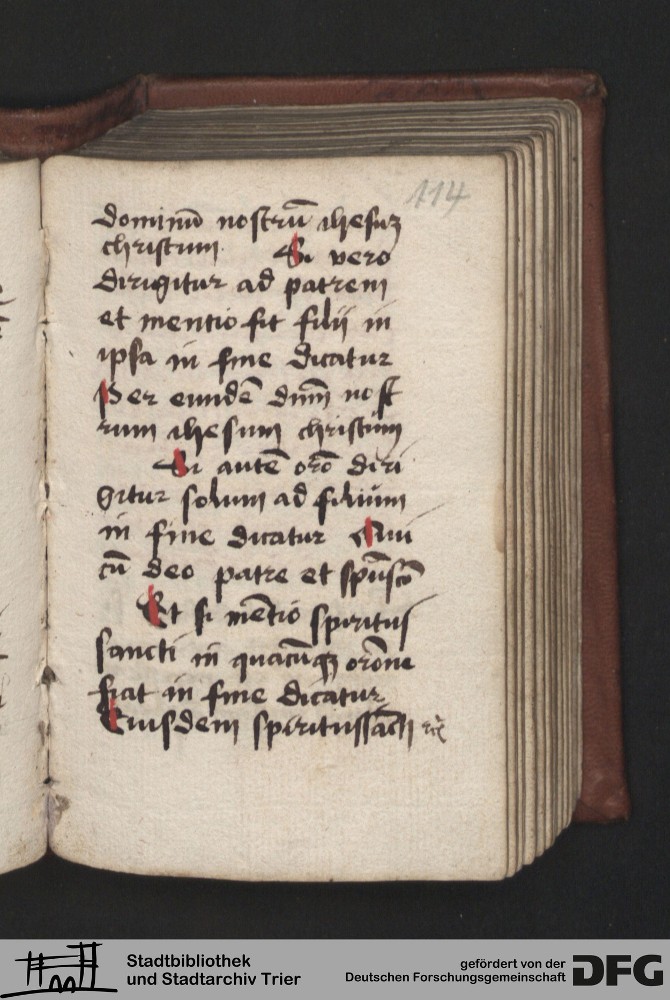 114
dominū nostrū ihesuȝ
christum Si vero
dirigitur ad patrem
et mentio fit filij in
ipsa in fine dicatur
Per eundē dnm̄ nost
rum ihesum christum
Si autē orō diri
gitur solum ad filium
in fine dicatur Qui
cū deo patre et spūscō
Et si mētio spiritus
sancti in quacūqȝ orōne
fiat in fine dicatur
Eiusdem spiritussācti rc̄
Stadtbibliothek
und Stadtarchiv Trier
gefördert von der
Deutschen Forschungsgemeinschaft
DFG